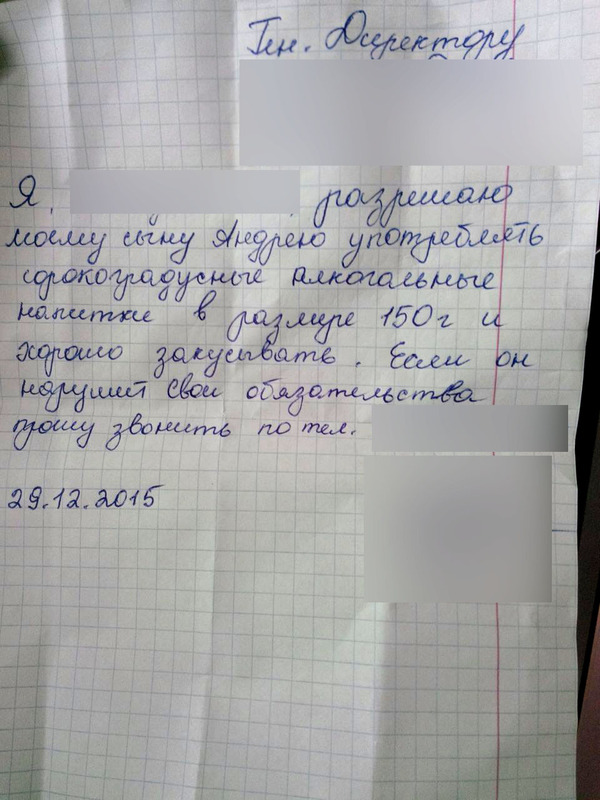 Ген. Директору
Я, разрешаю
моему сыну Андрею употреблять
сорокоградусные алкогольные
напитки в размере 150г и
хорошо закусывать. Если он
нарушит свои обязательства
прошу звонить по тел.
29.12.2015